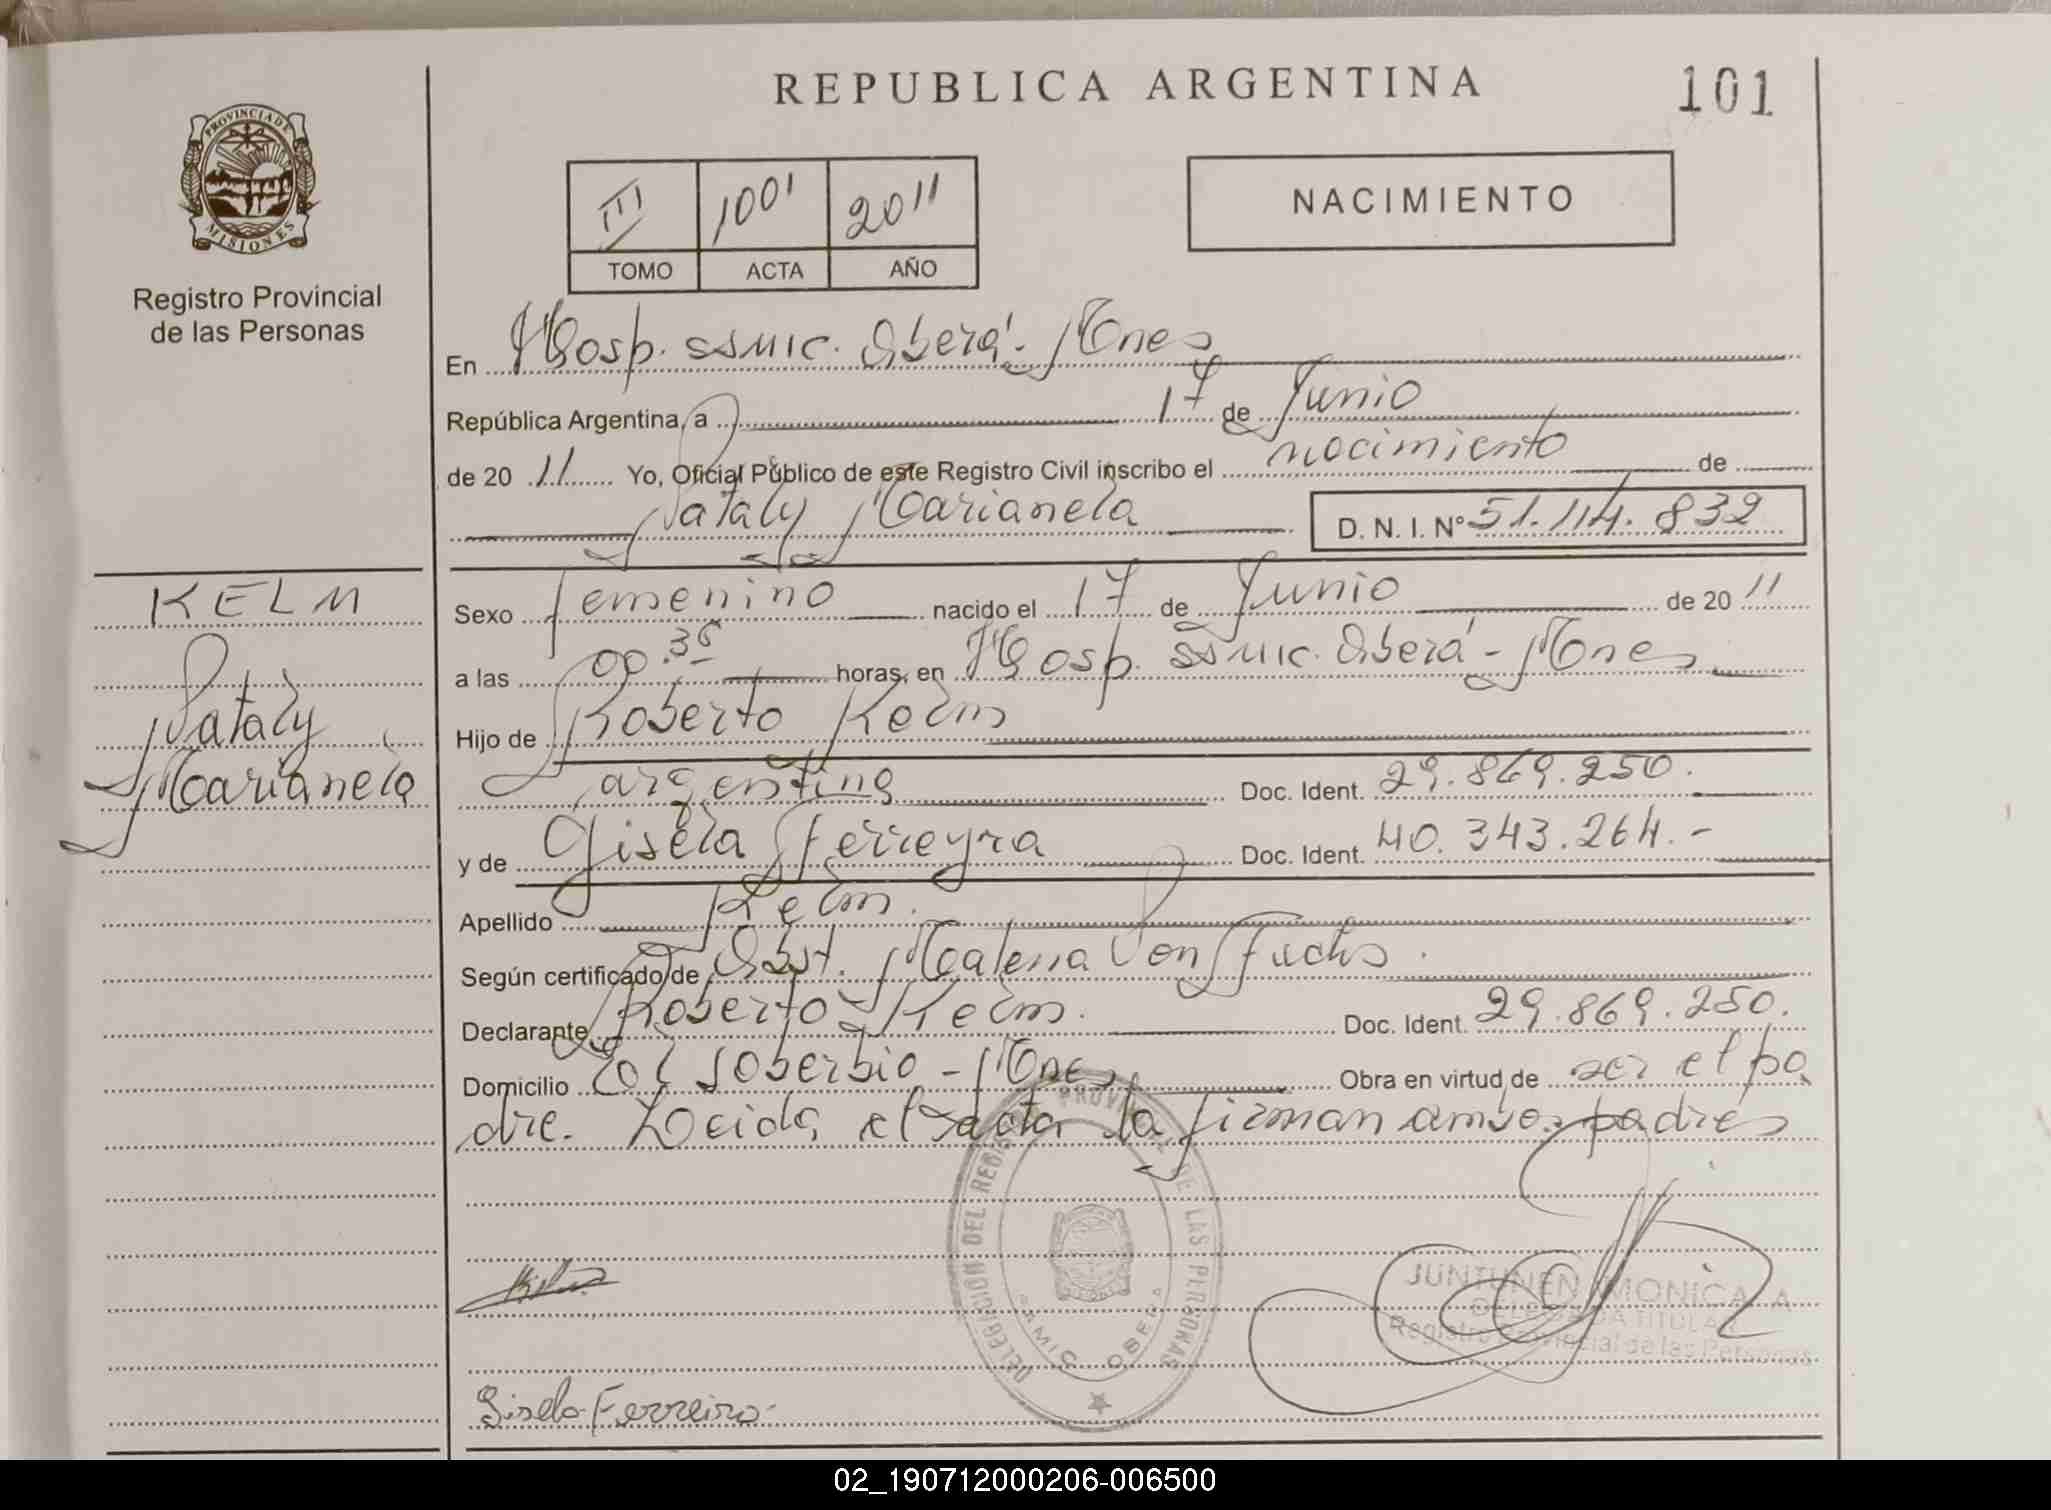 REPUBLICA ARGENTINA
101
PROVINCIA DE MISIONES
Registro Provincial
de las Personas
III 1001 2011
TOMO ACTA AÑO
NACIMIENTO
En Hosp. SSMIC. Oberá - Mnes
República Argentina, a 17 de Junio
de 20 11 Yo, Oficial Público de este Registro Civil inscribo el nacimiento de
Nataly Marianela D. N. I. N° 51.114.832
KELM
Nataly
Marianela
Sexo femenino nacido el 17 de Junio de 20 11
a las 00.35 horas, en Hosp. SSMIC. Oberá - Mnes
Hijo de Roberto Kelm
argentino Doc. Ident. 29.869.250.
y de Gisela Ferreyra Doc. Ident. 40.343.264.-
Apellido Kelm.
Según certificado de Obst. Malena Von Fuchs.
Declarante Roberto Kelm. Doc. Ident. 29.869.250.
Domicilio El Soberbio - Mnes Obra en virtud de ser el pa
dre. Leida el acta la firman ambos padres
DELEGACION DEL REGISTRO PROVINCIAL DE LAS PERSONAS
SAMIC OBERA
JUNTUNEN MONICA A
DELEGADA TITULAR
Registro Provincial de las Personas
Gisela Ferreira
02_190712000206-006500